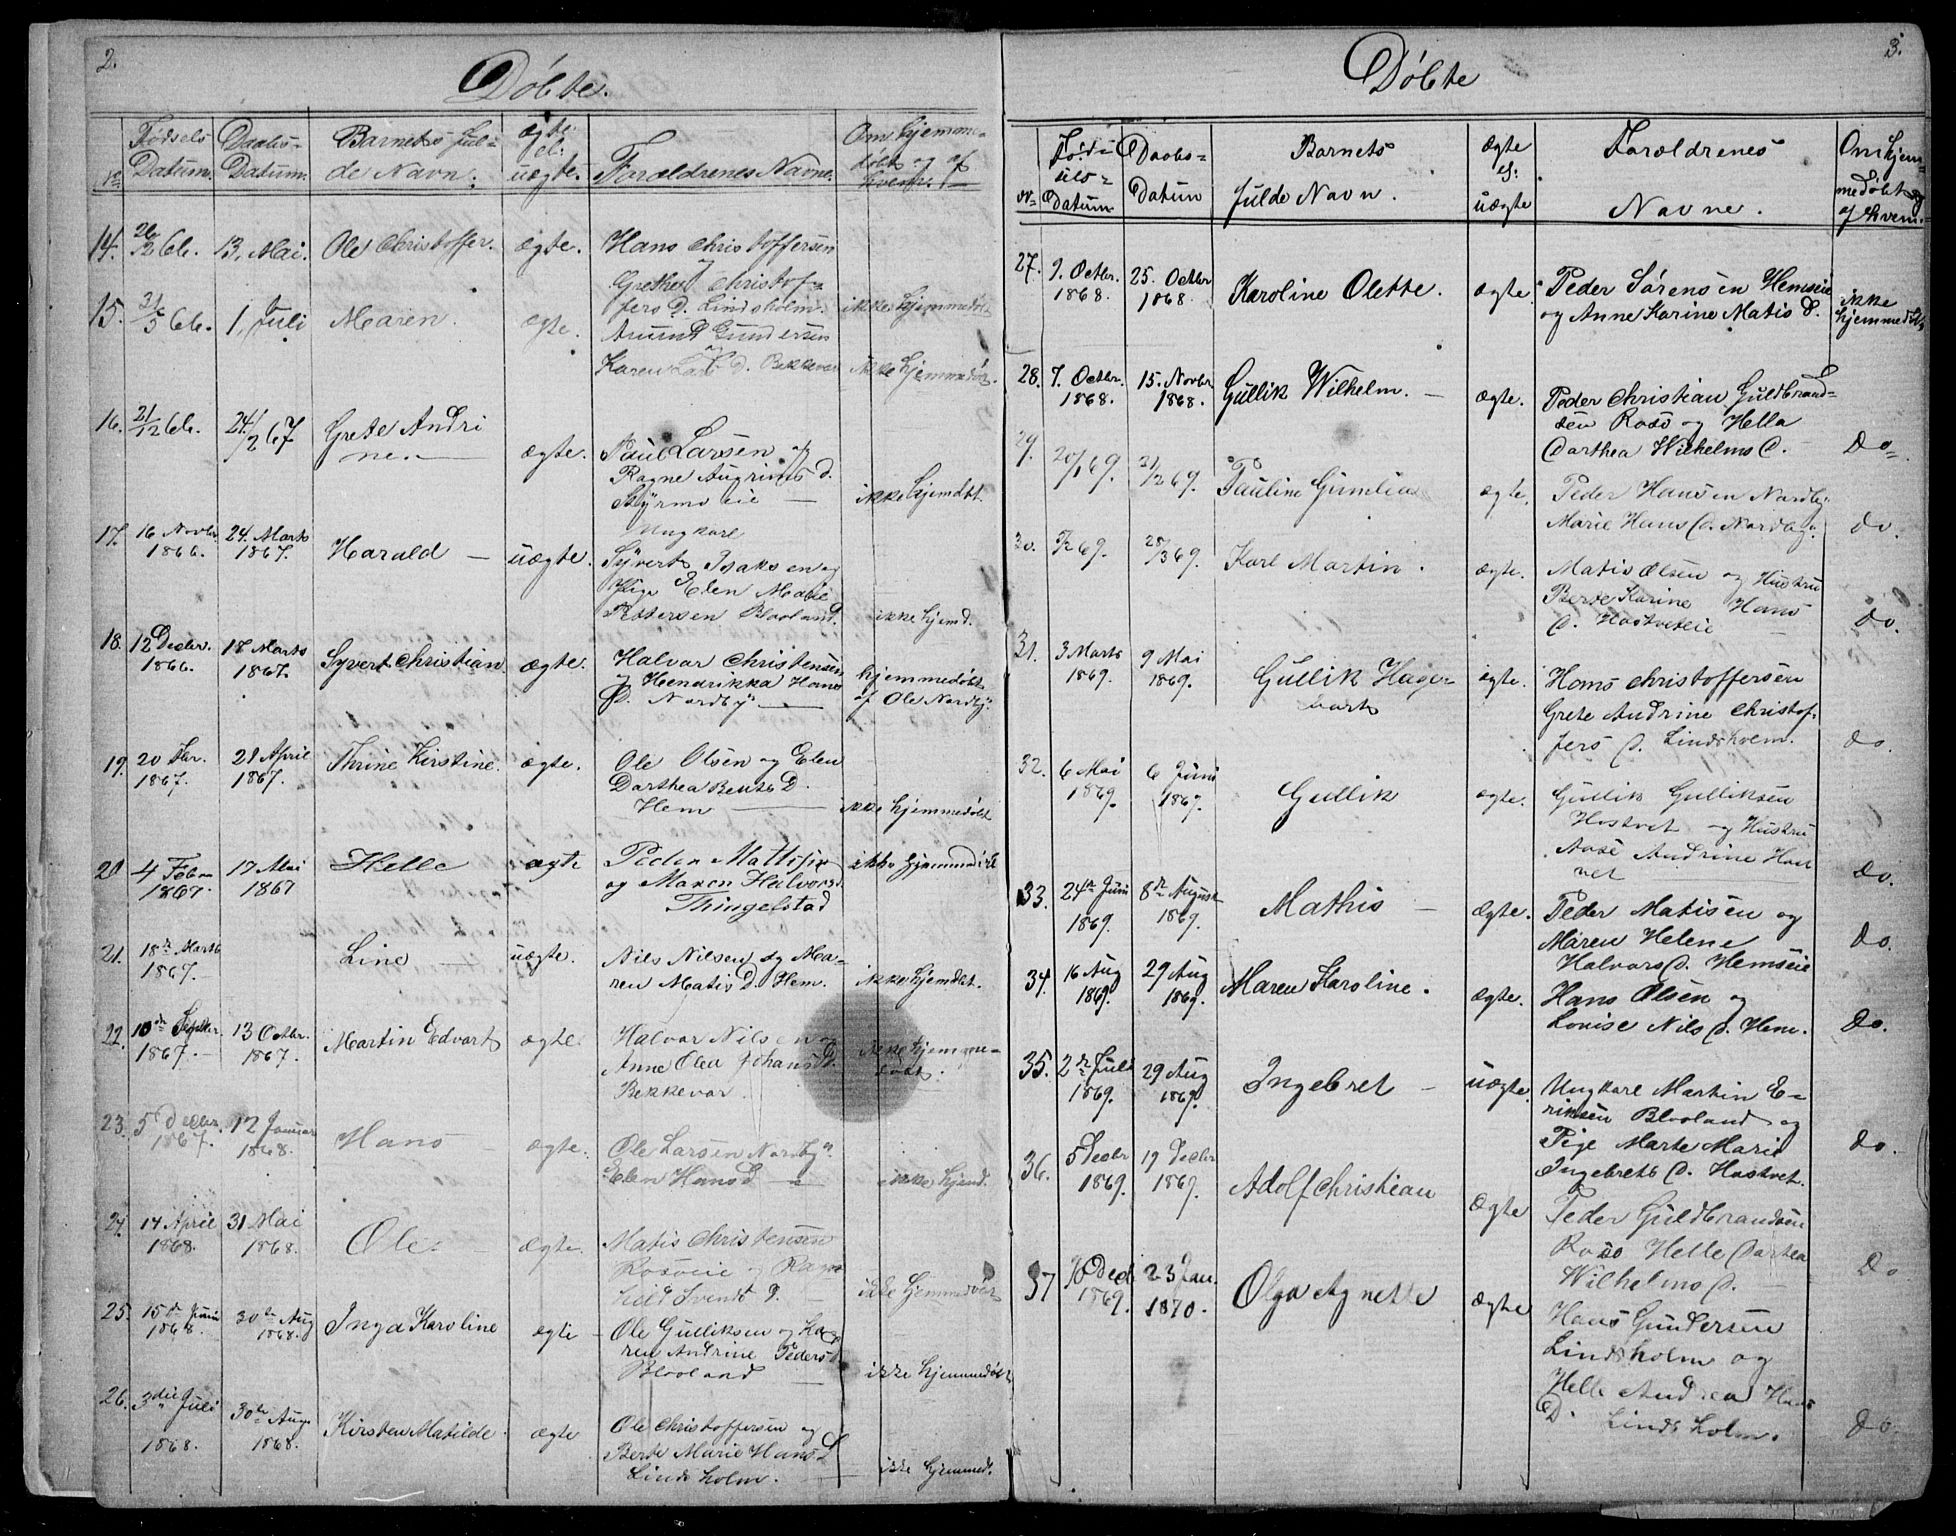 2.
Døbte.
No Fødsels Datum. Daabs- Datum. Barnets fulde Navn. ægte el. uægte. Forældrenes Navne. Om hjemmedøbt og af hvem.
14. 26/2 66. 13, Mai. Ole Christoffer. ægte. Hans Christoffersen
og
Grethe Christof-
fers D. Lindsholm.
15. 31/5 66. 1, Juli Maren. ægte. ikke hjemmedøbt
Amund Gundersen
og
Karen Lars D. Bekkevar ikke hjemmedøbt.
16. 21/12 66. 24/2 67 Grete Andri
ne. ægte. Paul Larsen og
Ragne Augrims D.
Styrmoeie ikke hjemdbt.
17. 16 Novbr. 1866. 24. Marts 1867. Harald uægte. Ungkarl
Syvert Isaksen og
Pige Elen Marie
Pettersen Blooland. ikke hjemd.
18. 12 Decbr. 1866. 18 Marts 1867. Syvert Christian. ægte. Halvar Christensen
og Hendrikka Hans
D. Nordby hjemmedøbt
af Ole Nordby
19. 20 1867. 21 April 1867. Thrine Kirstine. ægte. Ole Olsen og Elen
Darthea Bents D.
Hem ikke hjemmedøbt
20 4 Febr 1867. 17 Mai 1867 Helle ægte Peder Mattisen
og Maren Halvorsd.
Thingelstad ikke hjemmedøbt
21. 18de Marts 1867. Line uægte. Nils Nilsen og Ma-
ren Matis D. Hem. ikke hjemdbt.
22. 10de Septbr. 1867. 13 Octbr. 1867. Martin Edvart ægte. Halvar Nilsen og
Anne Olea Johans D.
Bekkevar. ikke hjemme-
døbt.
23. 5 Decbr. 1867. 12 Januar 1868. Hans ægte. Ole Larsen Nordby
Elen Hans D. ikke hjemd.
24. 14 April 1868. 31 Mai 1868. Ole. ægte. Matis Christensen
Rosoeie og Ragn
hild Svends D. ikke hjemmedøbt
25. 15de Juni 1868. 30te Aug 1868. Inga Karoline ægte Ole Gulliksen og Ka
ren Andrine Peders D
Blooland ikke hjemmedøbt
26. 3die Juli 1868. 30te Aug. 1868. Kirsten Matilde. ægte Ole Christoffersen og
Berte Marie Hans D
Lindsholm. ikke hjemmed.
3.
Døbte
No Fødselsdatum. Daabs- Datum Barnets fulde Navn. Ægte el. uægte Forældrenes Navne. Om hjemmedøbt og af hvem.
27. 9. Octbr. 1868. 25. Octbr 1868. Karoline Olette. ægte. Peder Sørensen Hemseie
og Anne Karine Matis D. ikke
hjemmedøbt
28. 7. Octbr. 1868. 15. Novbr 1868. Gullik Wilhelm. ægte. Peder Christian Guldbrand-
sen Roso og Hella
Darthea Wilhelms D. Do.
29. 20/1 69. 21/2 69. Pauline Gunilia ægte. Peder Hansen Nordby
Marie Hans D. Nordby do.
30. 7/2 69. 28/3 69. Karl Martin. ægte. Matis Olsen og Hustru
Berte Karine Hans
D. Hostveteie do.
31. 3 Marts 1869. 9 Mai 1869. Gullik Hager-
vart ægte. Hans Christoffersen
Grete Andrine Christof-
fers D. Lindsholm. do.
32. 6 Mai 1869. 6 Juni 1869. Gullik ægte. Gullik Gulliksen
Hostvet og Hustru
Aase Andrine Host
vet do.
33. 24de Juni 1869. 8de August 1869. Mathis ægte. Peder Matisen og
Maren Helene
Halvars D. Hemseie do.
34. 16 Aug 1869. 29 Aug 1869. Maren Karoline. ægte. Hans Olsen og
Lovise Nils D. Hem. do.
35. 2de Juli 1869. 29 Aug 1869. Ingebret uægte. Ungkarl Martin E-
riksen Blooland og
Pige Marte Marie
Ingebrets D. Hostvet. do.
36. 5 Decbr 1869. 19 Decbr 1869. Adolf Christian Ægte Peder Guldbrandsen
Roso Helle Darthea
Wilhelms D. Do
37 10 Dec 1869. 23 Jan. 1870. Olga Agnette Ægte Hans Gundersen
Lindsholm og
Helle Andrea Hans
D. Lindsholm. do.